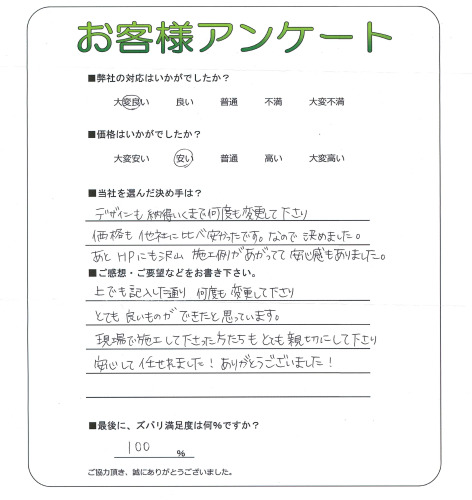 お客様アンケート
■弊社の対応はいかがでしたか？
大変良い 良い 普通 不満 大変不満
■価格はいかがでしたか？
大変安い 安い 普通 高い 大変高い
■当社を選んだ決め手は？
デザインも納得いくまで何度も変更して下さり
価格も他社に比べ安かったです。なので決めました。
あとHPにも沢山施工例があがってて安心感もありました。
■ご感想・ご要望などをお書き下さい。
上でも記入した通り何度も変更して下さり
とても良いものができたと思っています。
現場で施工して下さった方たちもとても親切にして下さり
安心して任せれました！ありがとうございました！
■最後に、ズバリ満足度は何％ですか？
100 ％
ご協力頂き、誠にありがとうございました。